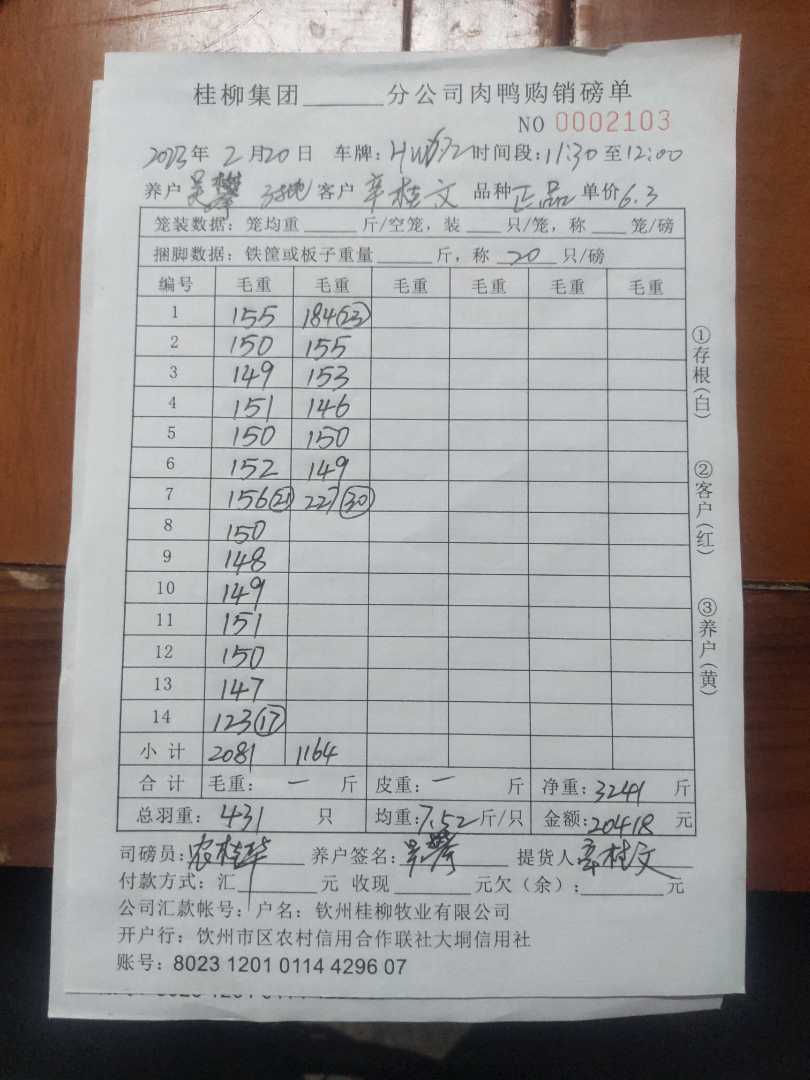 桂柳集团______分公司肉鸭购销磅单
NO 0002103
2023年 2月20日 车牌: 时间段:11:30至12:00
养户 吴攀 客户 辛桂文 品种 正品 单价6.3
笼装数据: 笼均重 ____ 斤/空笼, 装 ___ 只/笼, 称 ___ 笼/磅
捆脚数据: 铁筐或板子重量 ____ 斤, 称 20 只/磅
编号 毛重 毛重 毛重 毛重 毛重 毛重
1 155 184(23)
2 150 155
3 149 153
4 151 146
5 150 150
6 152 149
7 156(21) 227(30)
8 150
9 148
10 149
11 151
12 150
13 147
14 123(17)
小计 2081 1164
合计 毛重: 一 斤 皮重: 一 斤 净重:3241 斤
总羽重: 431 只 均重:7.52斤/只 金额:20418 元
司磅员:农桂华 养户签名:吴攀 提货人辛桂文
付款方式: 汇______元 收现______元欠(余):______元
公司汇款帐号: 户名: 钦州桂柳牧业有限公司
开户行: 钦州市区农村信用合作联社大垌信用社
账号: 8023 1201 0114 4296 07
①存根(白)
②客户(红)
③养户(黄)